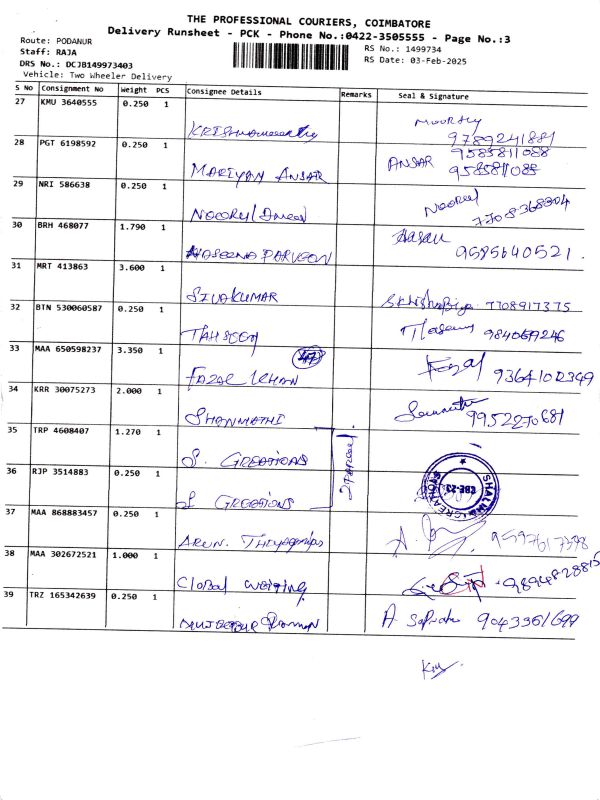 THE PROFESSIONAL COURIERS, COIMBATORE
Delivery Runsheet - PCK - Phone No.:0422-3505555 - Page No.:3
Route: PODANUR
RS No.: 1499734
Staff: RAJA
RS Date: 03-Feb-2025
DRS No.: DCJB149973403
Vehicle: Two Wheeler Delivery
S No Consignment No Weight PCS Consignee Details Remarks Seal & Signature
27 KMU 3640555 0.250 1
Moorthy
9789241881
28 PGT 6198592 0.250 1
MARIYAN ANSAR ANSAR 9585811088
9585811088
29 NRI 586638 0.250 1
7708368304
30 BRH 468077 1.790 1
HASEENA PARVEEN Hasan 9585640521.
31 MRT 413863 3.600 1
SIVAKUMAR 7708917375
32 BTN 530060587 0.250 1
TAHSEEN
33 MAA 650598237 3.350 1
FAZAL KHAN Fazal 9364102349
34 KRR 30075273 2.000 1
SHANMATHI 9952270681
35 TRP 4608407 1.270 1
S. CREATIONS
2 Parcel.
36 RJP 3514883 0.250 1
S CREATIONS
SHALINI CREATIONS
CBE-23
37 MAA 868883457 0.250 1
ARUN. 9597617398
38 MAA 302672521 1.000 1
Global 9894828815
39 TRZ 165342639 0.250 1
A 9043361699